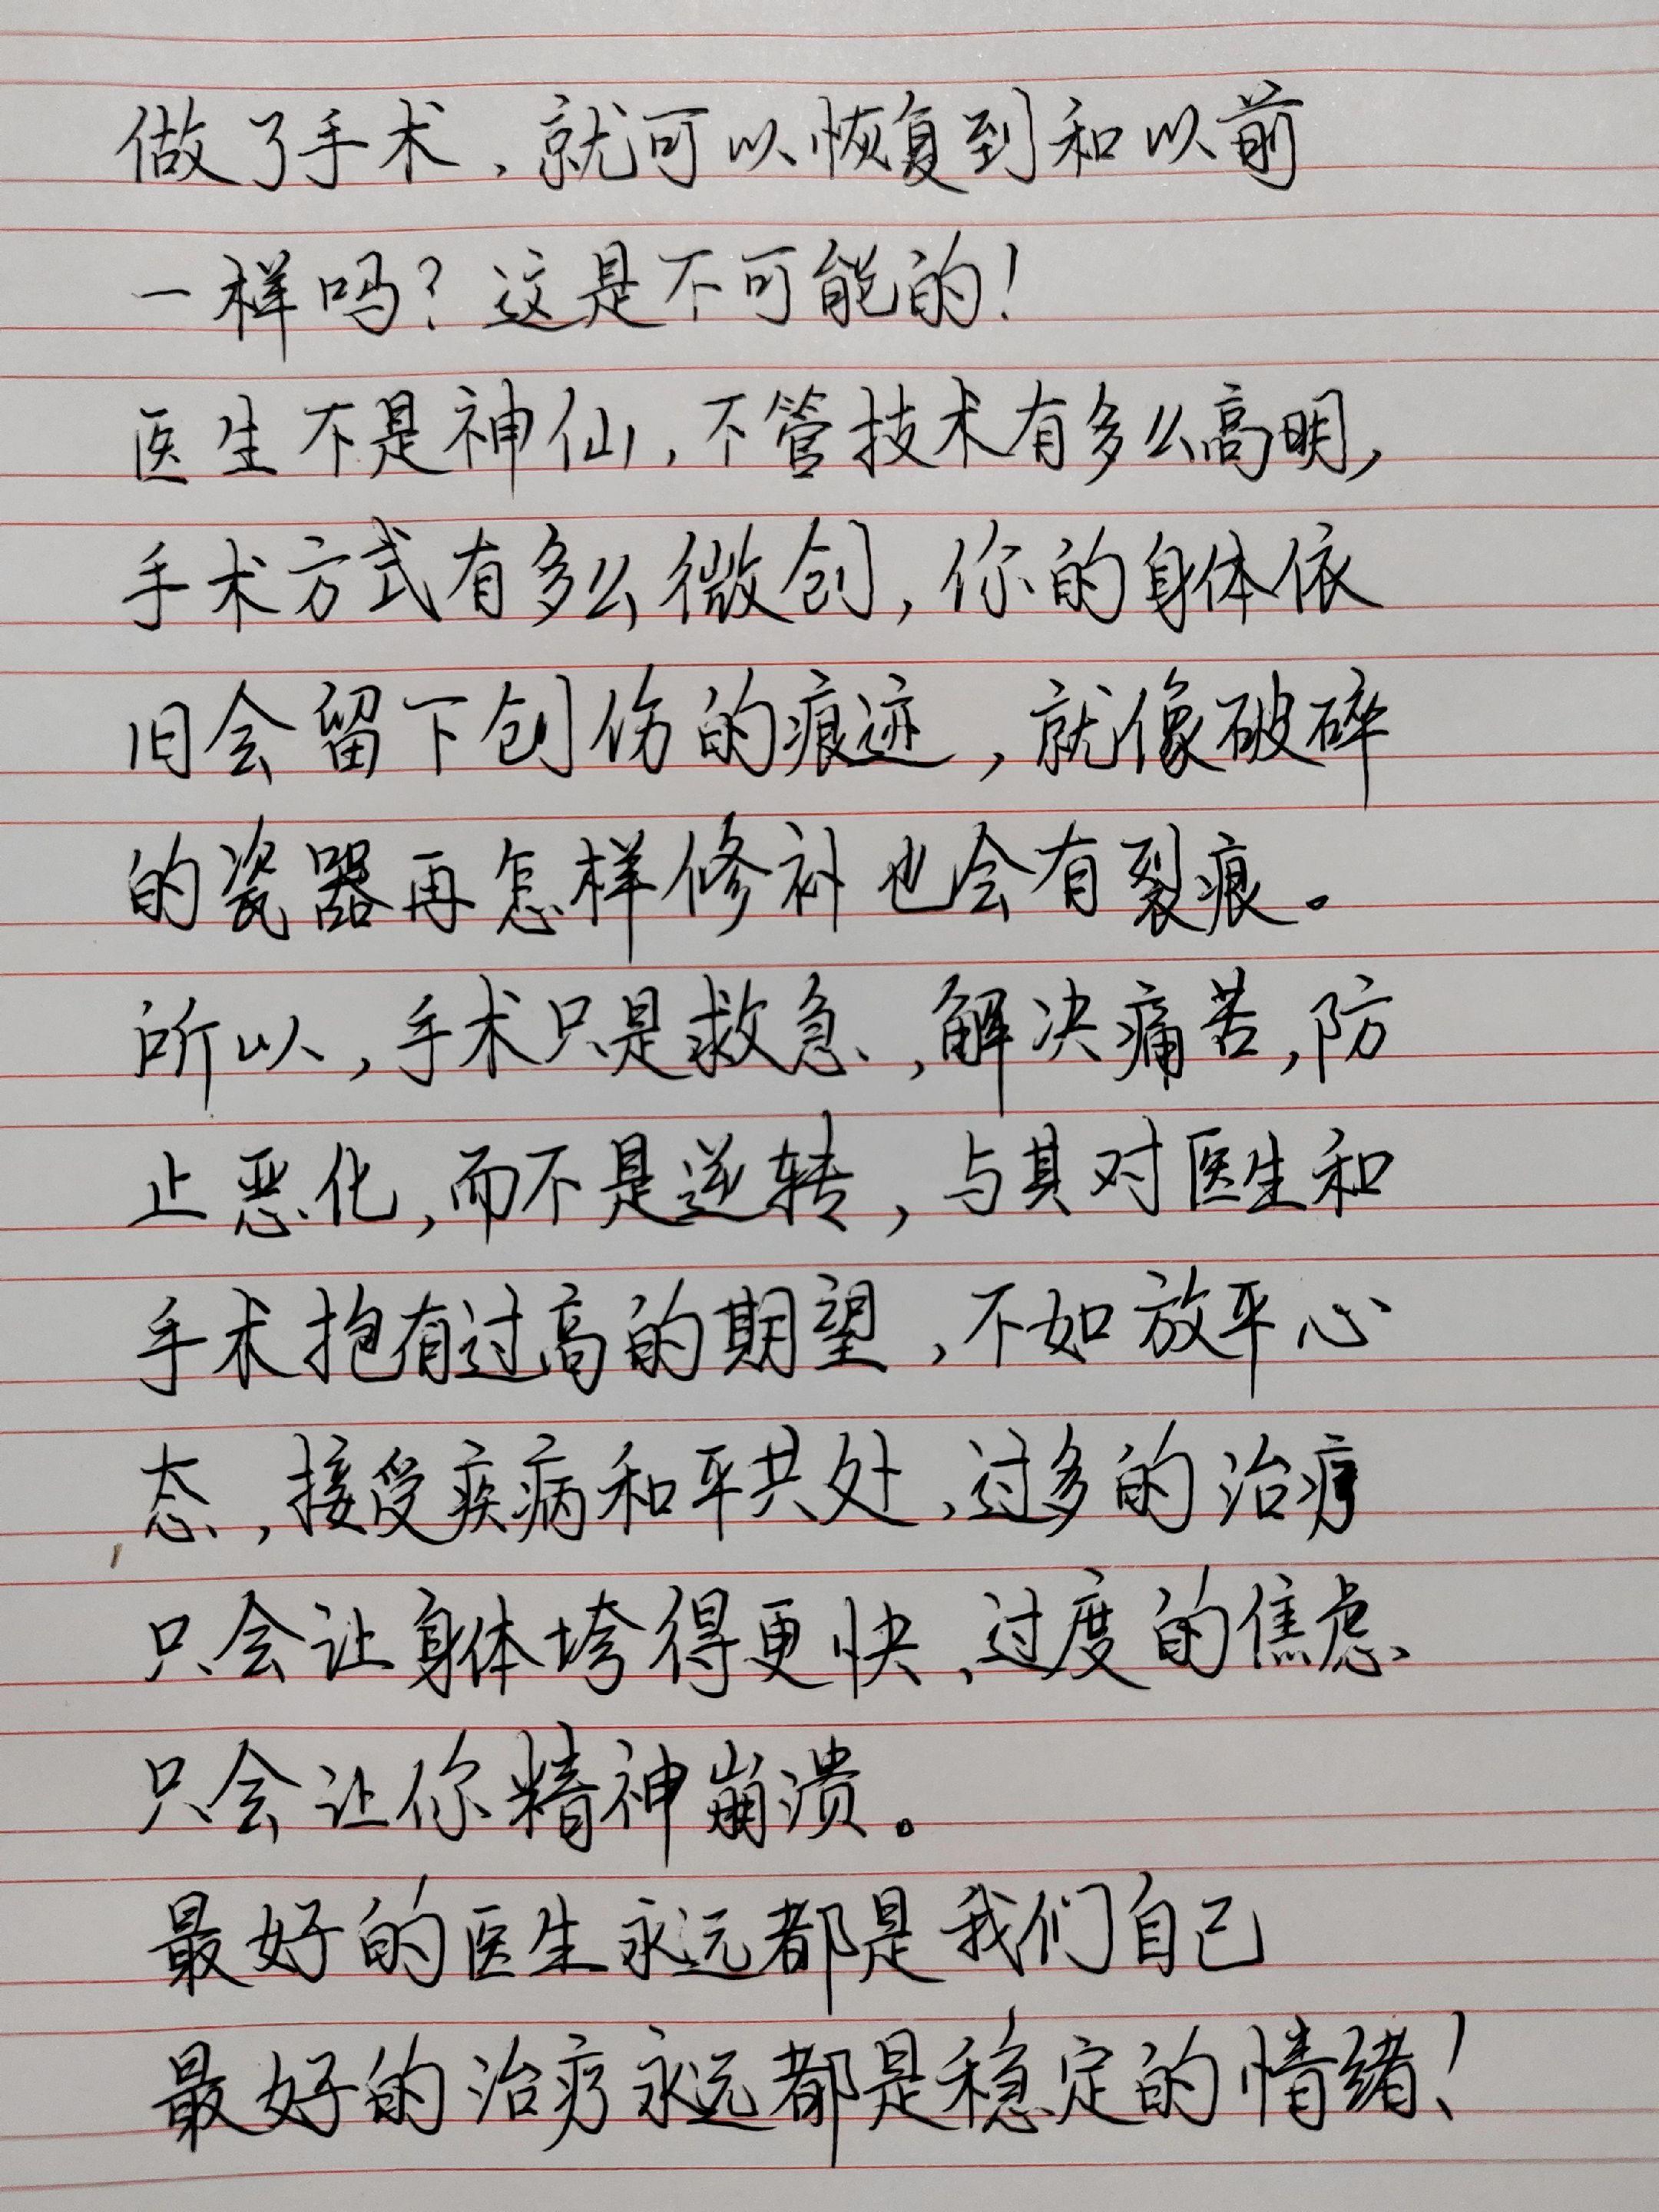 做了手术，就可以恢复到和以前
一样吗？这是不可能的！
医生不是神仙，不管技术有多么高明，
手术方式有多么微创，你的身体依
旧会留下创伤的痕迹，就像破碎
的瓷器再怎样修补也会有裂痕。
所以，手术只是救急，解决痛苦，防
止恶化，而不是逆转，与其对医生和
手术抱有过高的期望，不如放平心
态，接受疾病和平共处，过多的治疗
只会让身体垮得更快，过度的焦虑
只会让你精神崩溃。
最好的医生永远都是我们自己
最好的治疗永远都是稳定的情绪！